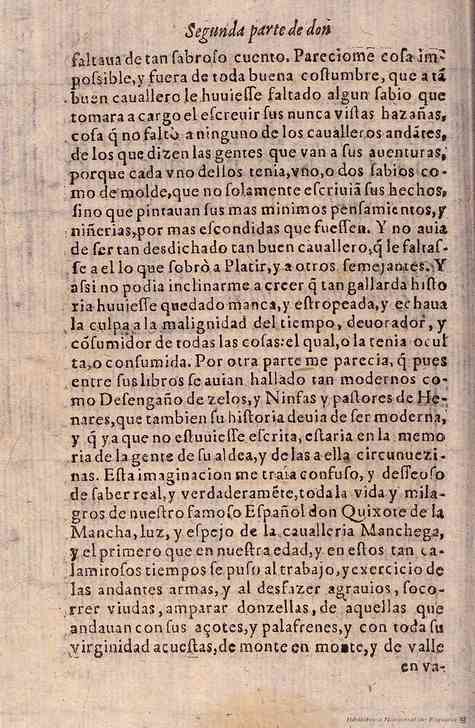 Segunda parte de don
faltaua de tan sabroso cuento. Pareciome cosa im-
possible, y fuera de toda buena costumbre, que a tã
buen cauallero le huuiesse faltado algun sabio que
tomara a cargo el escreuir sus nunca vistas hazañas,
cosa q̃ no faltò a ninguno de los caualleros andãtes,
de los que dizen las gentes que van a sus auenturas,
porque cada vno dellos tenia, vno, o dos sabios co-
mo de molde, que no solamente escriuiã sus hechos,
sino que pintauan sus mas minimos pensamientos, y
niñerias, por mas escondidas que fuessen. Y no auia
de ser tan desdichado tan buen cauallero, q̃ le faltas-
se a el lo que sobrò a Platir, y a otros semejantes. Y
assi no podia inclinarme a creer q̃ tan gallarda histo
ria huuiesse quedado manca, y estropeada, y echaua
la culpa a la malignidad del tiempo, deuorador, y
cõsumidor de todas las cosas: el qual, o la tenia ocul
ta, o consumida. Por otra parte me parecia, q̃ pues
entre sus libros se auian hallado tan modernos co-
mo Desengaño de zelos, y Ninfas y pastores de He-
nares, que tambien su historia deuia de ser moderna,
y q̃ ya que no estuuiesse escrita, estaria en la memo
ria de la gente de su aldea, y de las a ella circunuezi-
nas. Esta imaginacion me traìa confuso, y desseoso
de saber real, y verdaderamẽte, toda la vida y mila-
gros de nuestro famoso Español don Quixote de la
Mancha, luz, y espejo de la caualleria Manchega,
y el primero que en nuestra edad, y en estos tan ca-
lamitosos tiempos se puso al trabajo, y exercicio de
las andantes armas, y al desfazer agrauios, soco-
rrer viudas, amparar donzellas, de aquellas que
andauan con sus açotes, y palafrenes, y con toda su
virginidad acuestas, de monte en monte, y de valle
en va-
Biblioteca Nacional de España